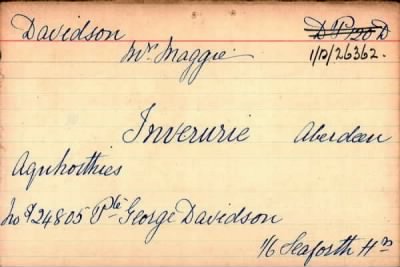 Davidson
D P 120 D
Mrs Maggie
1/D/26362.
Inverurie Aberdeen
Aquhorthies
No S/24805 Pte George Davidson
1/6 Seaforth Hrs